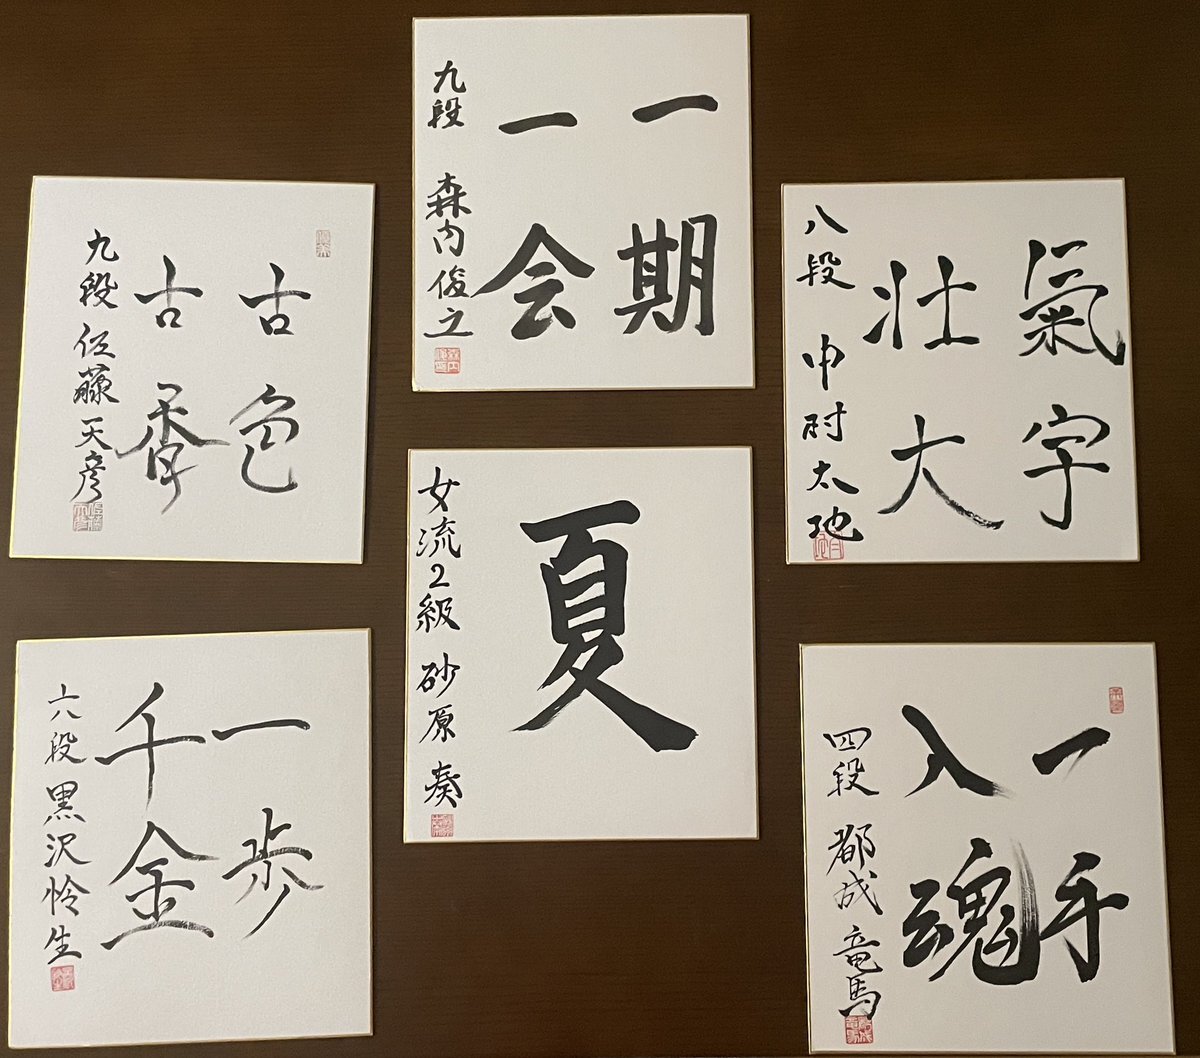 一期
一会
九段 森内俊之
古色
古香
九段 佐藤天彦
氣宇
壮大
八段 中村太地
夏
女流2級 砂原 奏
一歩
千金
六段 黒沢怜生
一手
入魂
四段 都成 竜馬